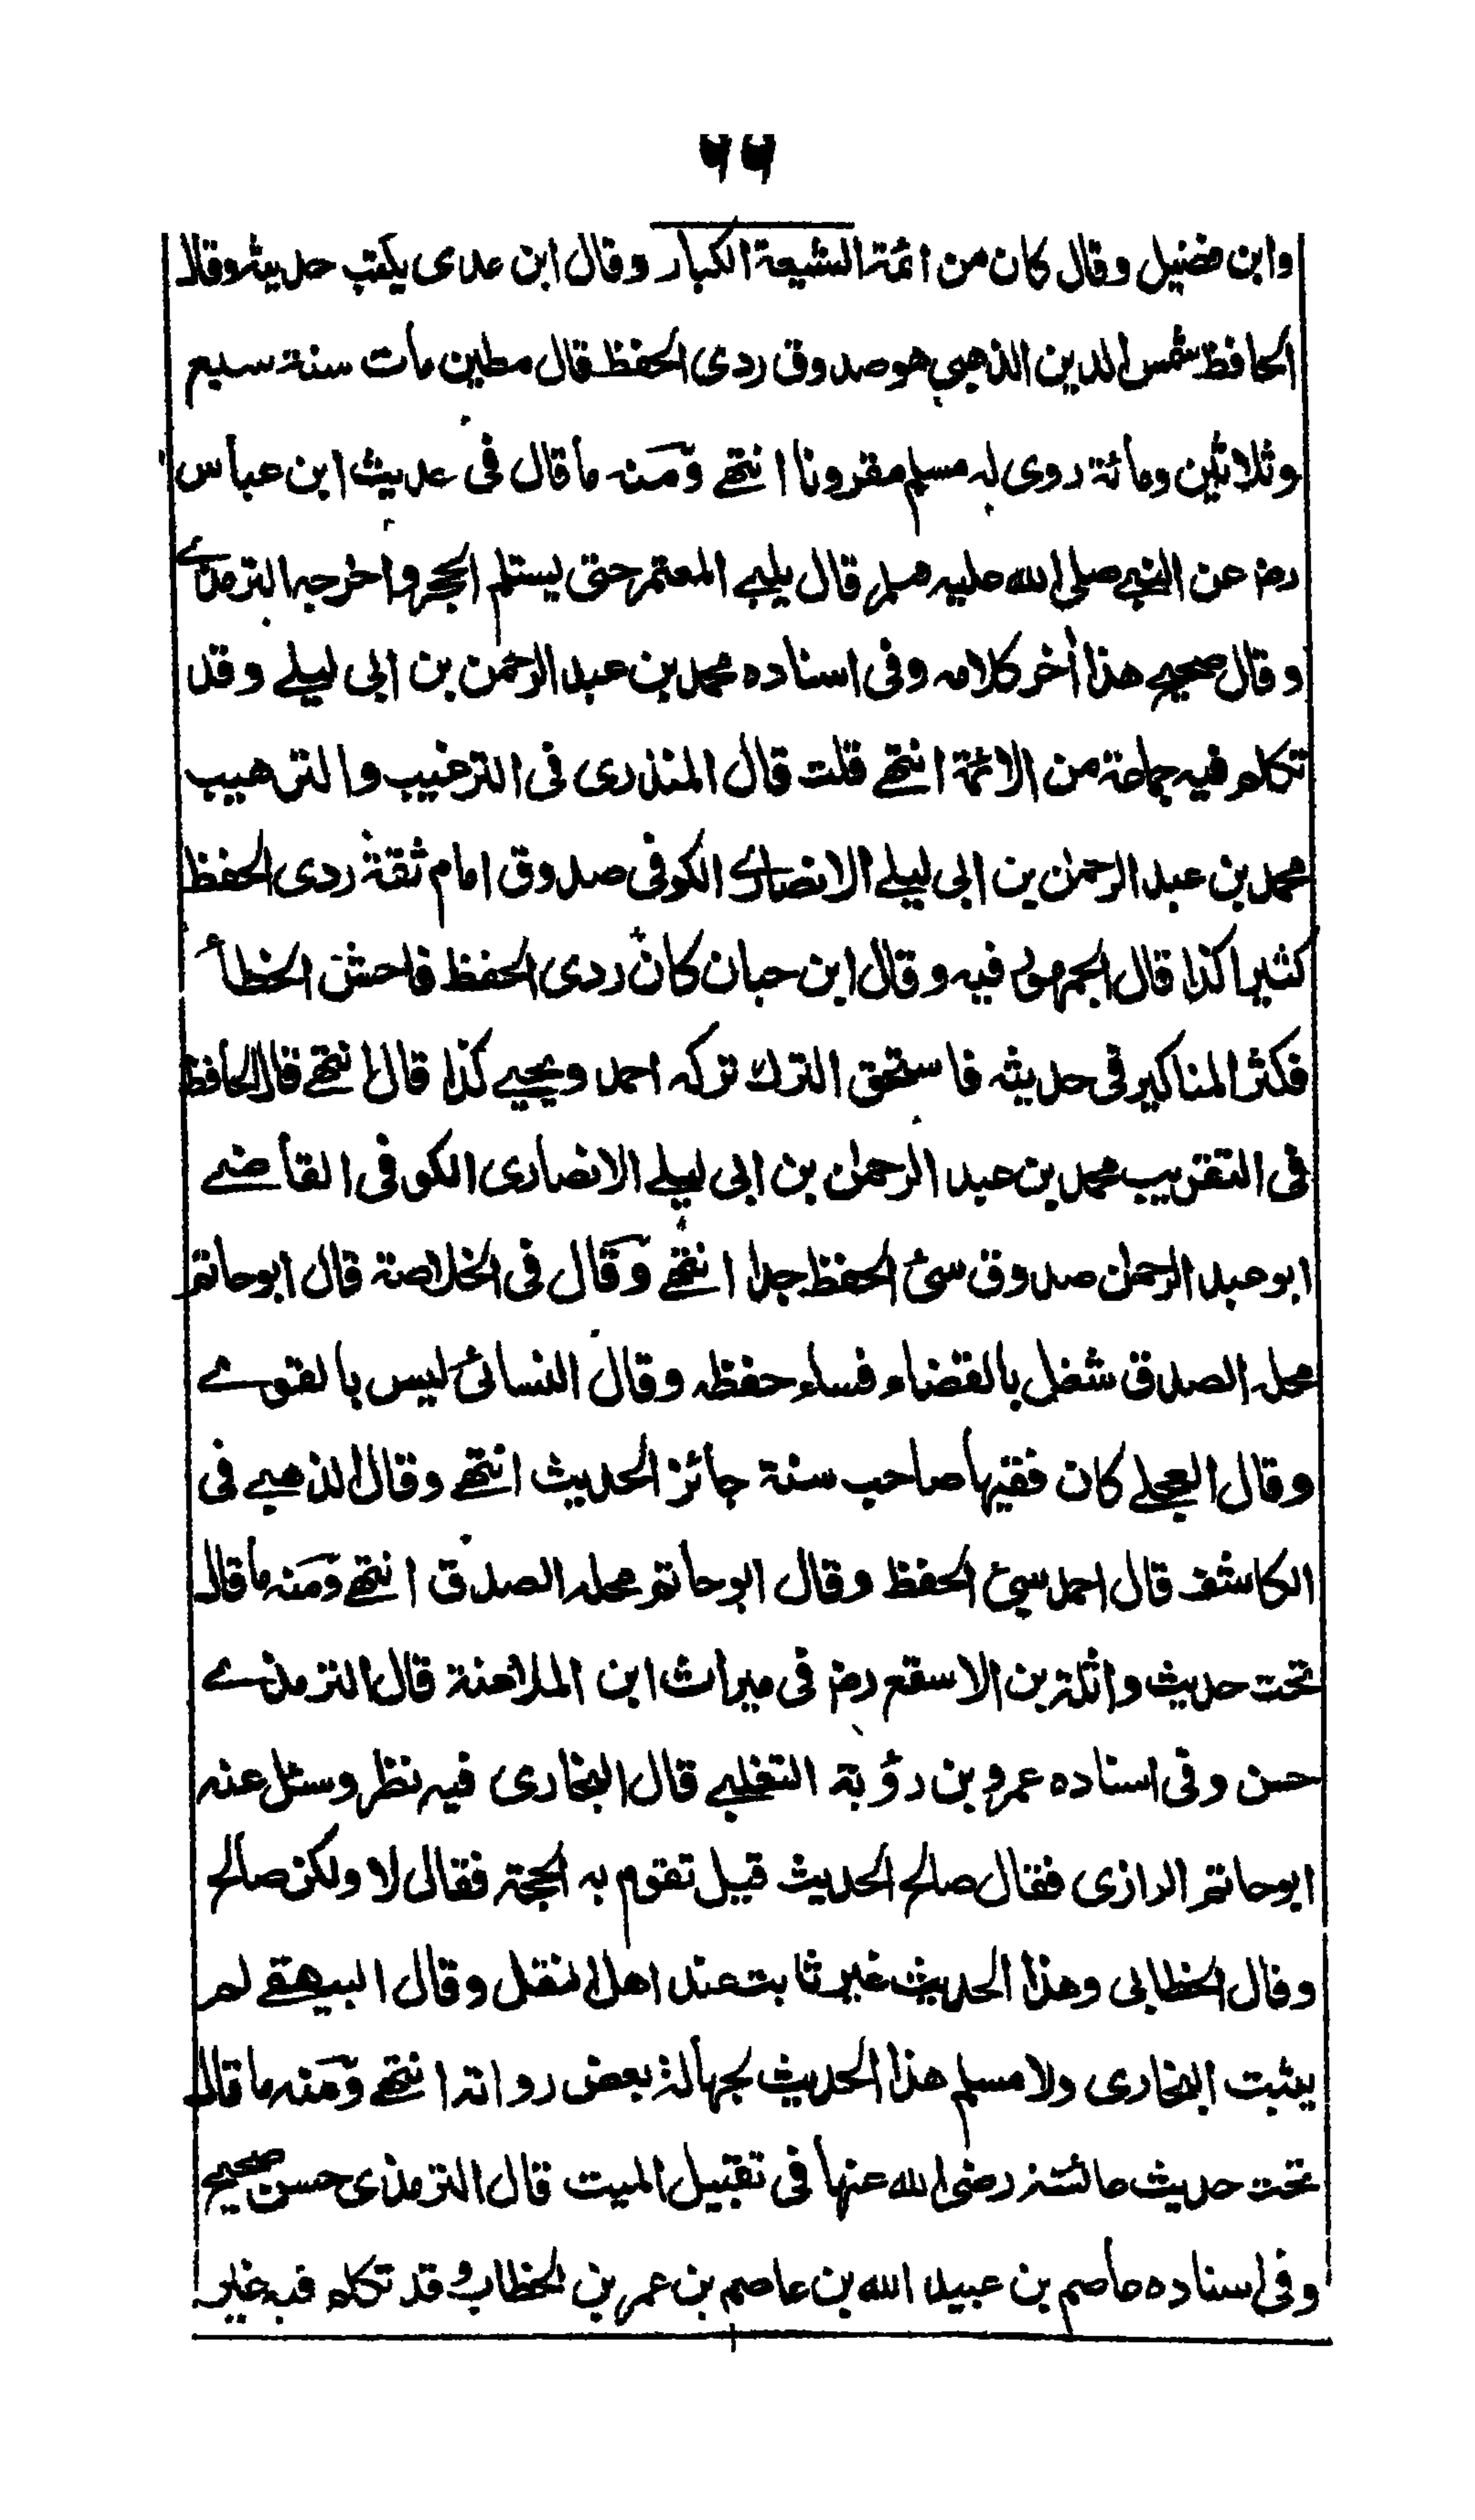 ٦٦
وابن فضيل وقال كان من ائمة الشيعة الكبار وقال ابن عدى يكتب حديثه وقال
الحافظ شمس الدين الذهبي هو صدوق ردى الحفظ قال مطين مات سنة سبع
وثلاثين ومائة روى له مسلم مقرونا انتهے ومنه ما قال فى حديث ابن عباس
رض عن النبے صلى الله عليه وسلم قال يلبے المعتمر حتى يستلم الحجر واخرجه الترمذے
وقال صحيح هذا أخر كلامه وفى اسناده محمد بن عبد الرحمن بن ابى ليلے وقد
تكلم فيه جماعة من الائمة انتهے قلت قال المنذرى فى الترغيب والترهيب
محمد بن عبد الرحمن بن ابى ليلے الانصارے الكوفى صدوق امام ثقة ردى الحفظ
كثيرا كذا قال الجمهور فيه وقال ابن حبان كان ردى الحفظ فاحش الخطأ
فكثر المناكير فى حديثه فاستحق الترك تركه احمد ويحيے كذا قال انتهے قال الحافظ
فى التقريب محمد بن عبد الرحمن بن ابى ليلے الانصارى الكوفى القاضے
ابو عبد الرحمن صدوق سئ الحفظ جدا انتهے وقال فى الخلاصة قال ابو حاتم
محله الصدق شغل بالقضاء فساء حفظه وقال النسائى ليس بالقوے
وقال العجلے كان فقيها صاحب سنة جائز الحديث انتهے وقال الذهبے فى
الكاشف قال احمد سيئ الحفظ وقال ابو حاتم محله الصدق انتهے ومنه ما قال
تحت حديث واثلة بن الاسقع رض فى ميراث ابن الملاعنة قال الترمذے
حسن وفى اسناده عمرو بن رؤبة التغلبے قال البخارى فيه نظر وسئل عنه
ابو حاتم الرازى فقال صالح الحديث قيل تقوم به الحجة فقال لا ولكن صالح
وقال الخطابى وهذا الحديث غير ثابت عند اهل النقل وقال البيهقے لم
يثبت البخارى ولا مسلم هذا الحديث لجهالة بعض رواته انتهے ومنه ما قال
تحت حديث عائشة رضى الله عنها فى تقبيل الميت قال الترمذى حسن صحيح
وفى اسناده عاصم بن عبيد الله بن عاصم بن عمر بن الخطاب وقد تكلم فيه غير